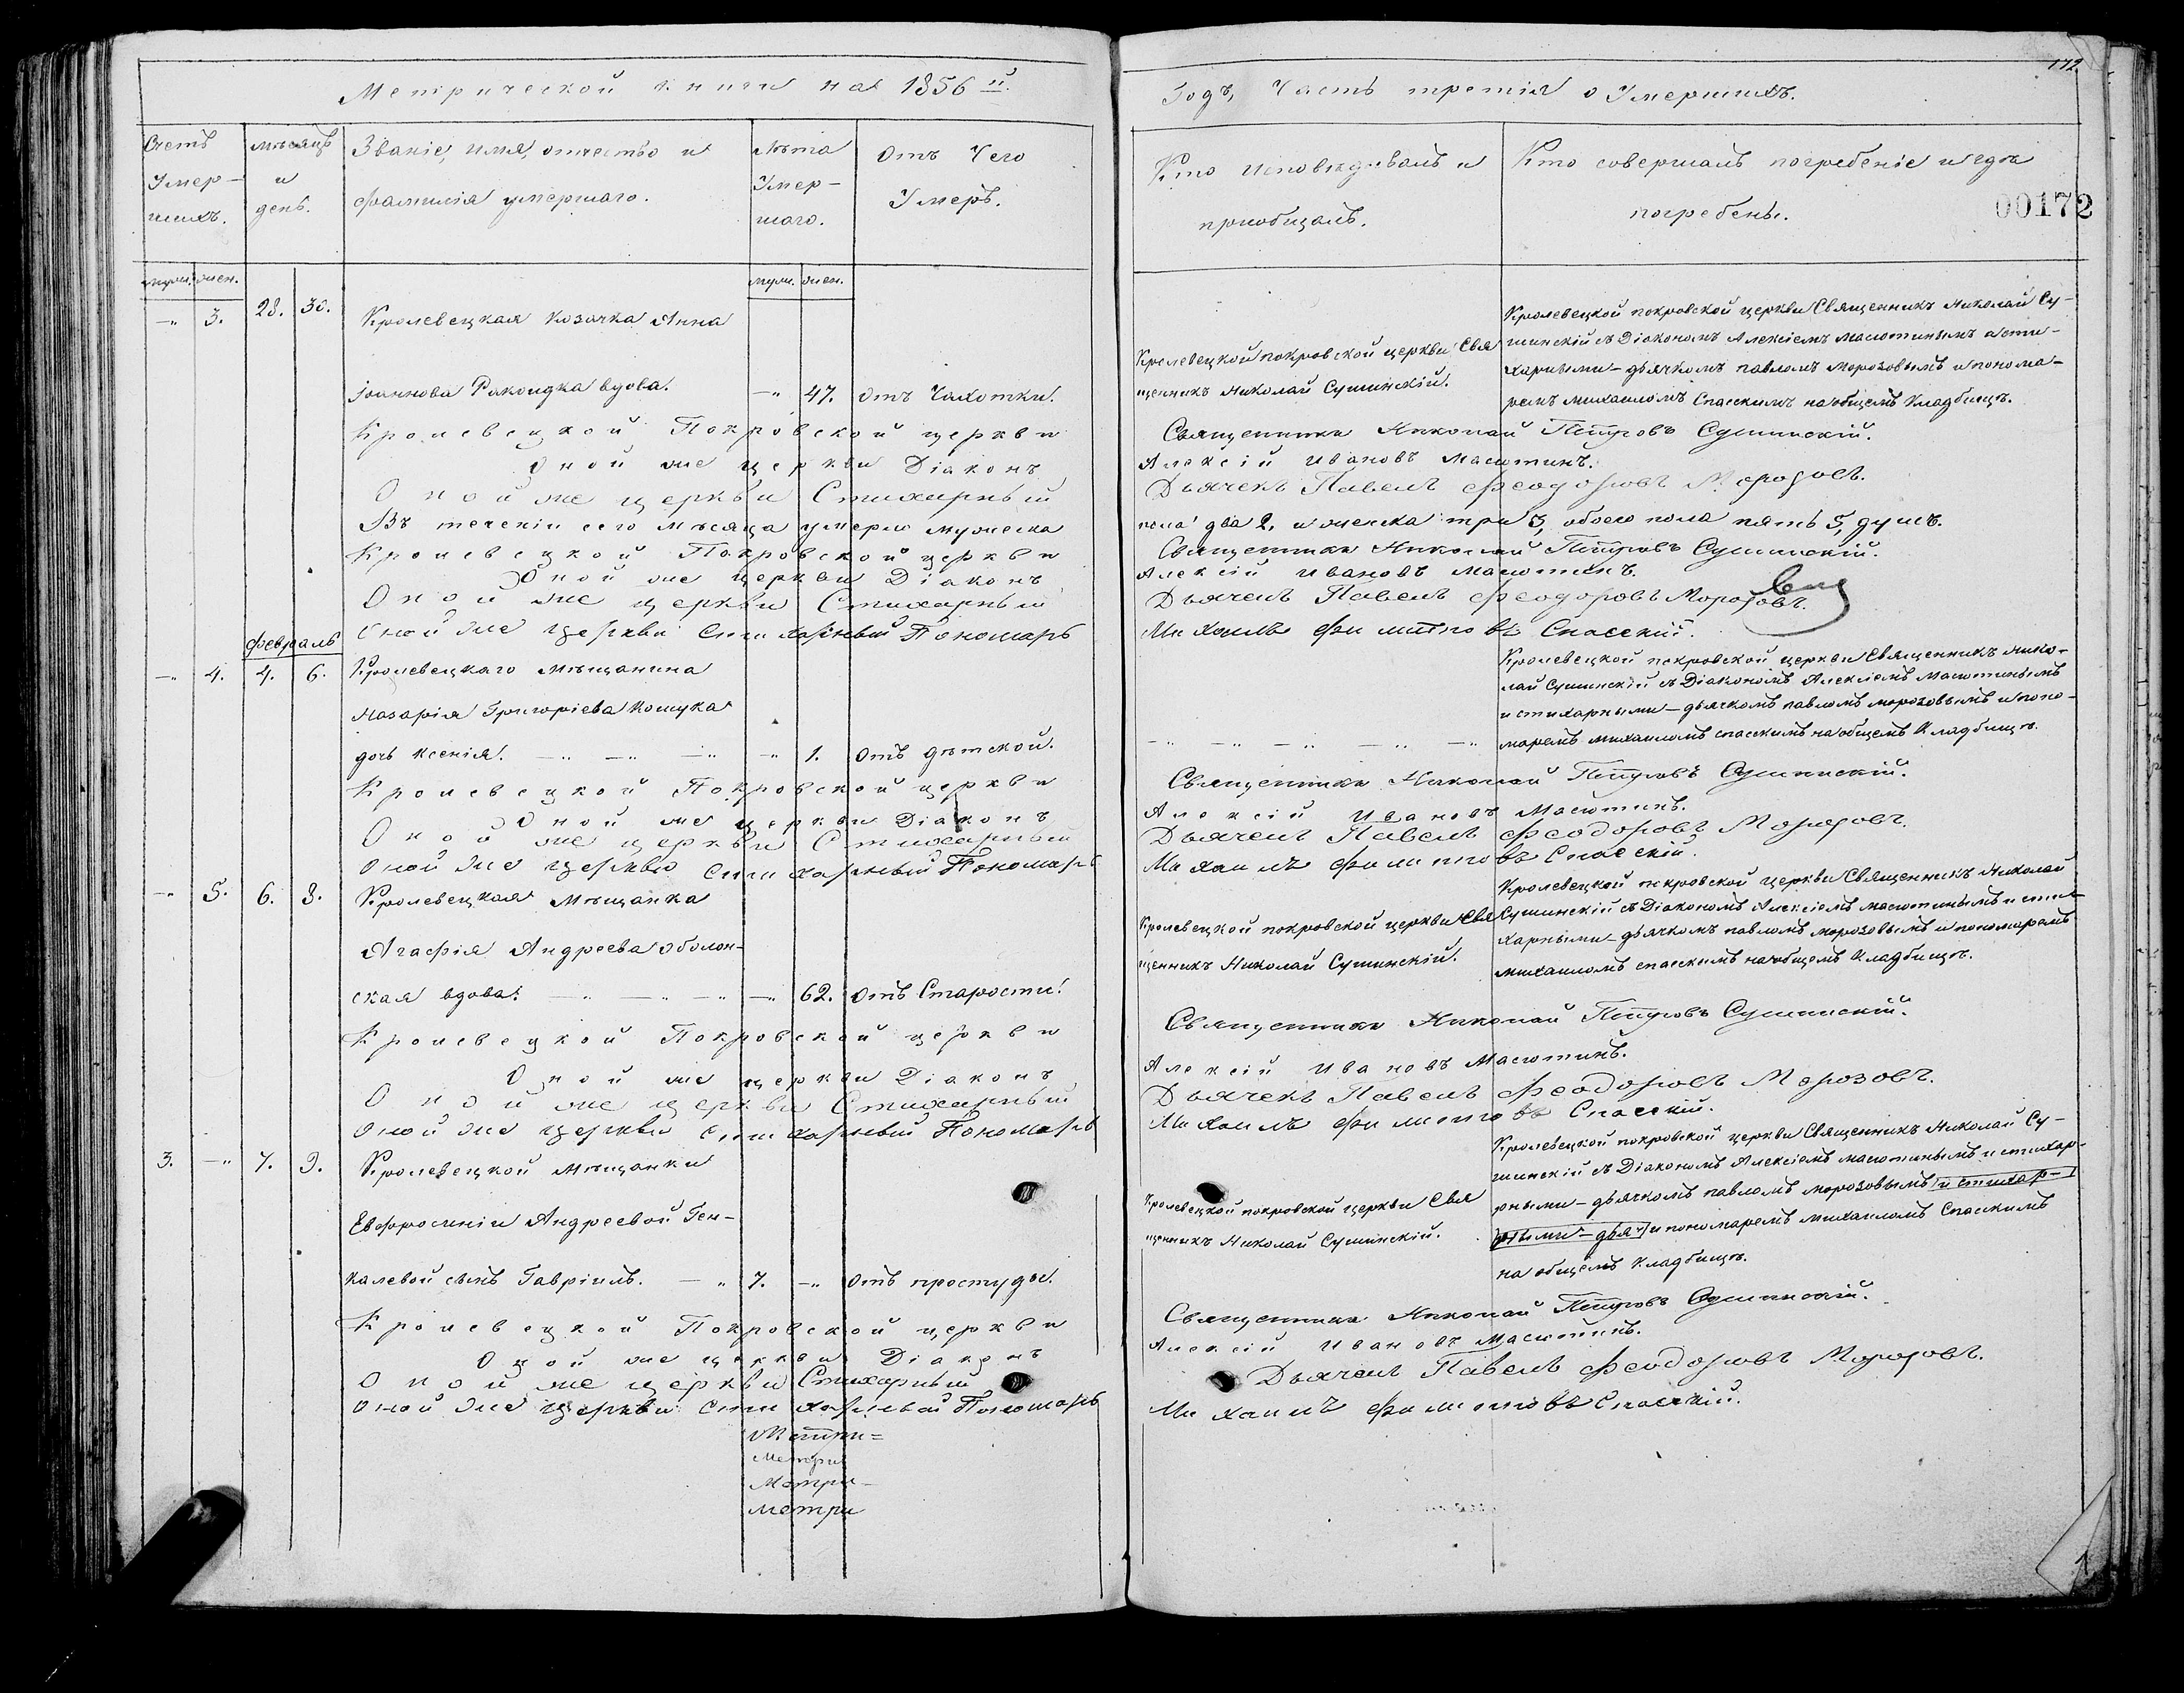 Метрической книги на 1856й.
Счетъ
Умер-
шихъ.
мѣсяцъ
и
день.
Званіе, имя, отчество и
фамилія умершаго.
Лѣта
Умер-
шаго.
Отъ Чего
Умеръ.
муж. жен.
муж. жен.
-„ 3. 28. 30. Кролевецкая козачка Анна
Іоаннова Ракоидка вдова. -„ 47. отъ Чахотки.
Кролевецкой Покровской церкви
Оной же церкви Діаконъ
Оной же церкви Стихарный
Въ теченіи сего мѣсяца умерло мужеска
Кролевецкой Покровской церкви
Оной же церкви Діаконъ
Оной же церкви Стихарный
Оной же церкви стихарный Пономарь
Февраль
-„ 4. 4. 6. Кролевецкаго мѣщанина
Назарія Григоріева Кошука
дочь Ксенія. -„ -„ -„ -„ 1. отъ дѣтской.
Кролевецкой Покровской церкви
Оной же церкви Діаконъ
Оной же церкви Стихарный
Оной же церкви стихарный Пономарь
-„ 5. 6. 8. Кролевецкая Мѣщанка
Агафія Андреева Оболон-
ская вдова. -„ -„ -„ -„ 62. отъ Старости.
Кролевецкой Покровской церкви
Оной же церкви Діаконъ
Оной же церкви Стихарный
Оной же церкви стихарный Пономарь
3. -„ 7. 9. Кролевецкой Мѣщанки
Евфросиніи Андреевой Ген-
калевой сынъ Гавріилъ. -„ 7. -„ отъ простуды.
Кролевецкой Покровской церкви
Оной же церкви Діаконъ
Оной же церкви Стихарный
Оной же церкви стихарный Пономарь
Метри=
Метри
Метри-
метри
172
Годъ, Часть третія о Умершихъ.
Кто исповѣдывалъ и
приобщалъ.
Кто совершалъ погребеніе и гдѣ
погребены.
00172
Кролевецкой покровской церкви Свя
щенникъ Николай Сушинскій.
Кролевецкой покровской церкви Священникъ Николай Су-
шинскій съ Діакономъ Алексіемъ Масютинымъ и сти-
харными - дьячкомъ павломъ Морозовымъ и понома-
ремъ михаиломъ Спасскимъ на общемъ Кладбищѣ.
Священникъ Николай Петровъ Сушинскій.
Алексій Ивановъ Масютинъ.
Дьячекъ Павелъ Феодоровъ Морозовъ.
пола два 2, и женска три 3, обоего пола пять 5, душъ.
Священникъ Николай Петровъ Сушинскій.
Алексій Ивановъ Масютинъ.
Дьячекъ Павелъ Феодоровъ Морозовъ.
Михаилъ Филиповъ Спасскій.
Кролевецкой покровской церкви Священникъ Нико-
лай Сушинскій съ Діакономъ Алексіемъ Масютинымъ
и стихарными - дьячкомъ павломъ морозовымъ и поно-
маремъ михаиломъ спасскимъ на общемъ Кладбищѣ.
-„ -„ -„ -„ -„
Священникъ Николай Петровъ Сушинскій.
Алексій Ивановъ Масютинъ.
Дьячекъ Павелъ Феодоровъ Морозовъ.
Михаилъ Филиповъ Спасскій.
Кролевецкой покровской церкви Свя
щенникъ Николай Сушинскій.
Кролевецкой покровской церкви Священникъ Николай
Сушинскій съ Діакономъ Алексіемъ масютинымъ и сти-
харными - дьячкомъ павломъ морозовымъ и пономаремъ
михаиломъ спасскимъ на общемъ Кладбищѣ.
Священникъ Николай Петровъ Сушинскій.
Алексій Ивановъ Масютинъ.
Дьячекъ Павелъ Феодоровъ Морозовъ.
Михаилъ Филиповъ Спасскій.
Кролевецкой покровской церкви Свя
щенникъ Николай Сушинскій.
Кролевецкой покровской церкви Священникъ Николай Су-
шинскій съ Діакономъ Алексіемъ масютинымъ и стихар-
рными - дьячкомъ павломъ морозовымъ и стихар-
ными - дья и пономаремъ михаиломъ Спасскимъ
на общемъ Кладбищѣ.
Священникъ Николай Петровъ Сушинскій.
Алексій Ивановъ Масютинъ.
Дьячекъ Павелъ Феодоровъ Морозовъ.
Михаилъ Филиповъ Спасскій.